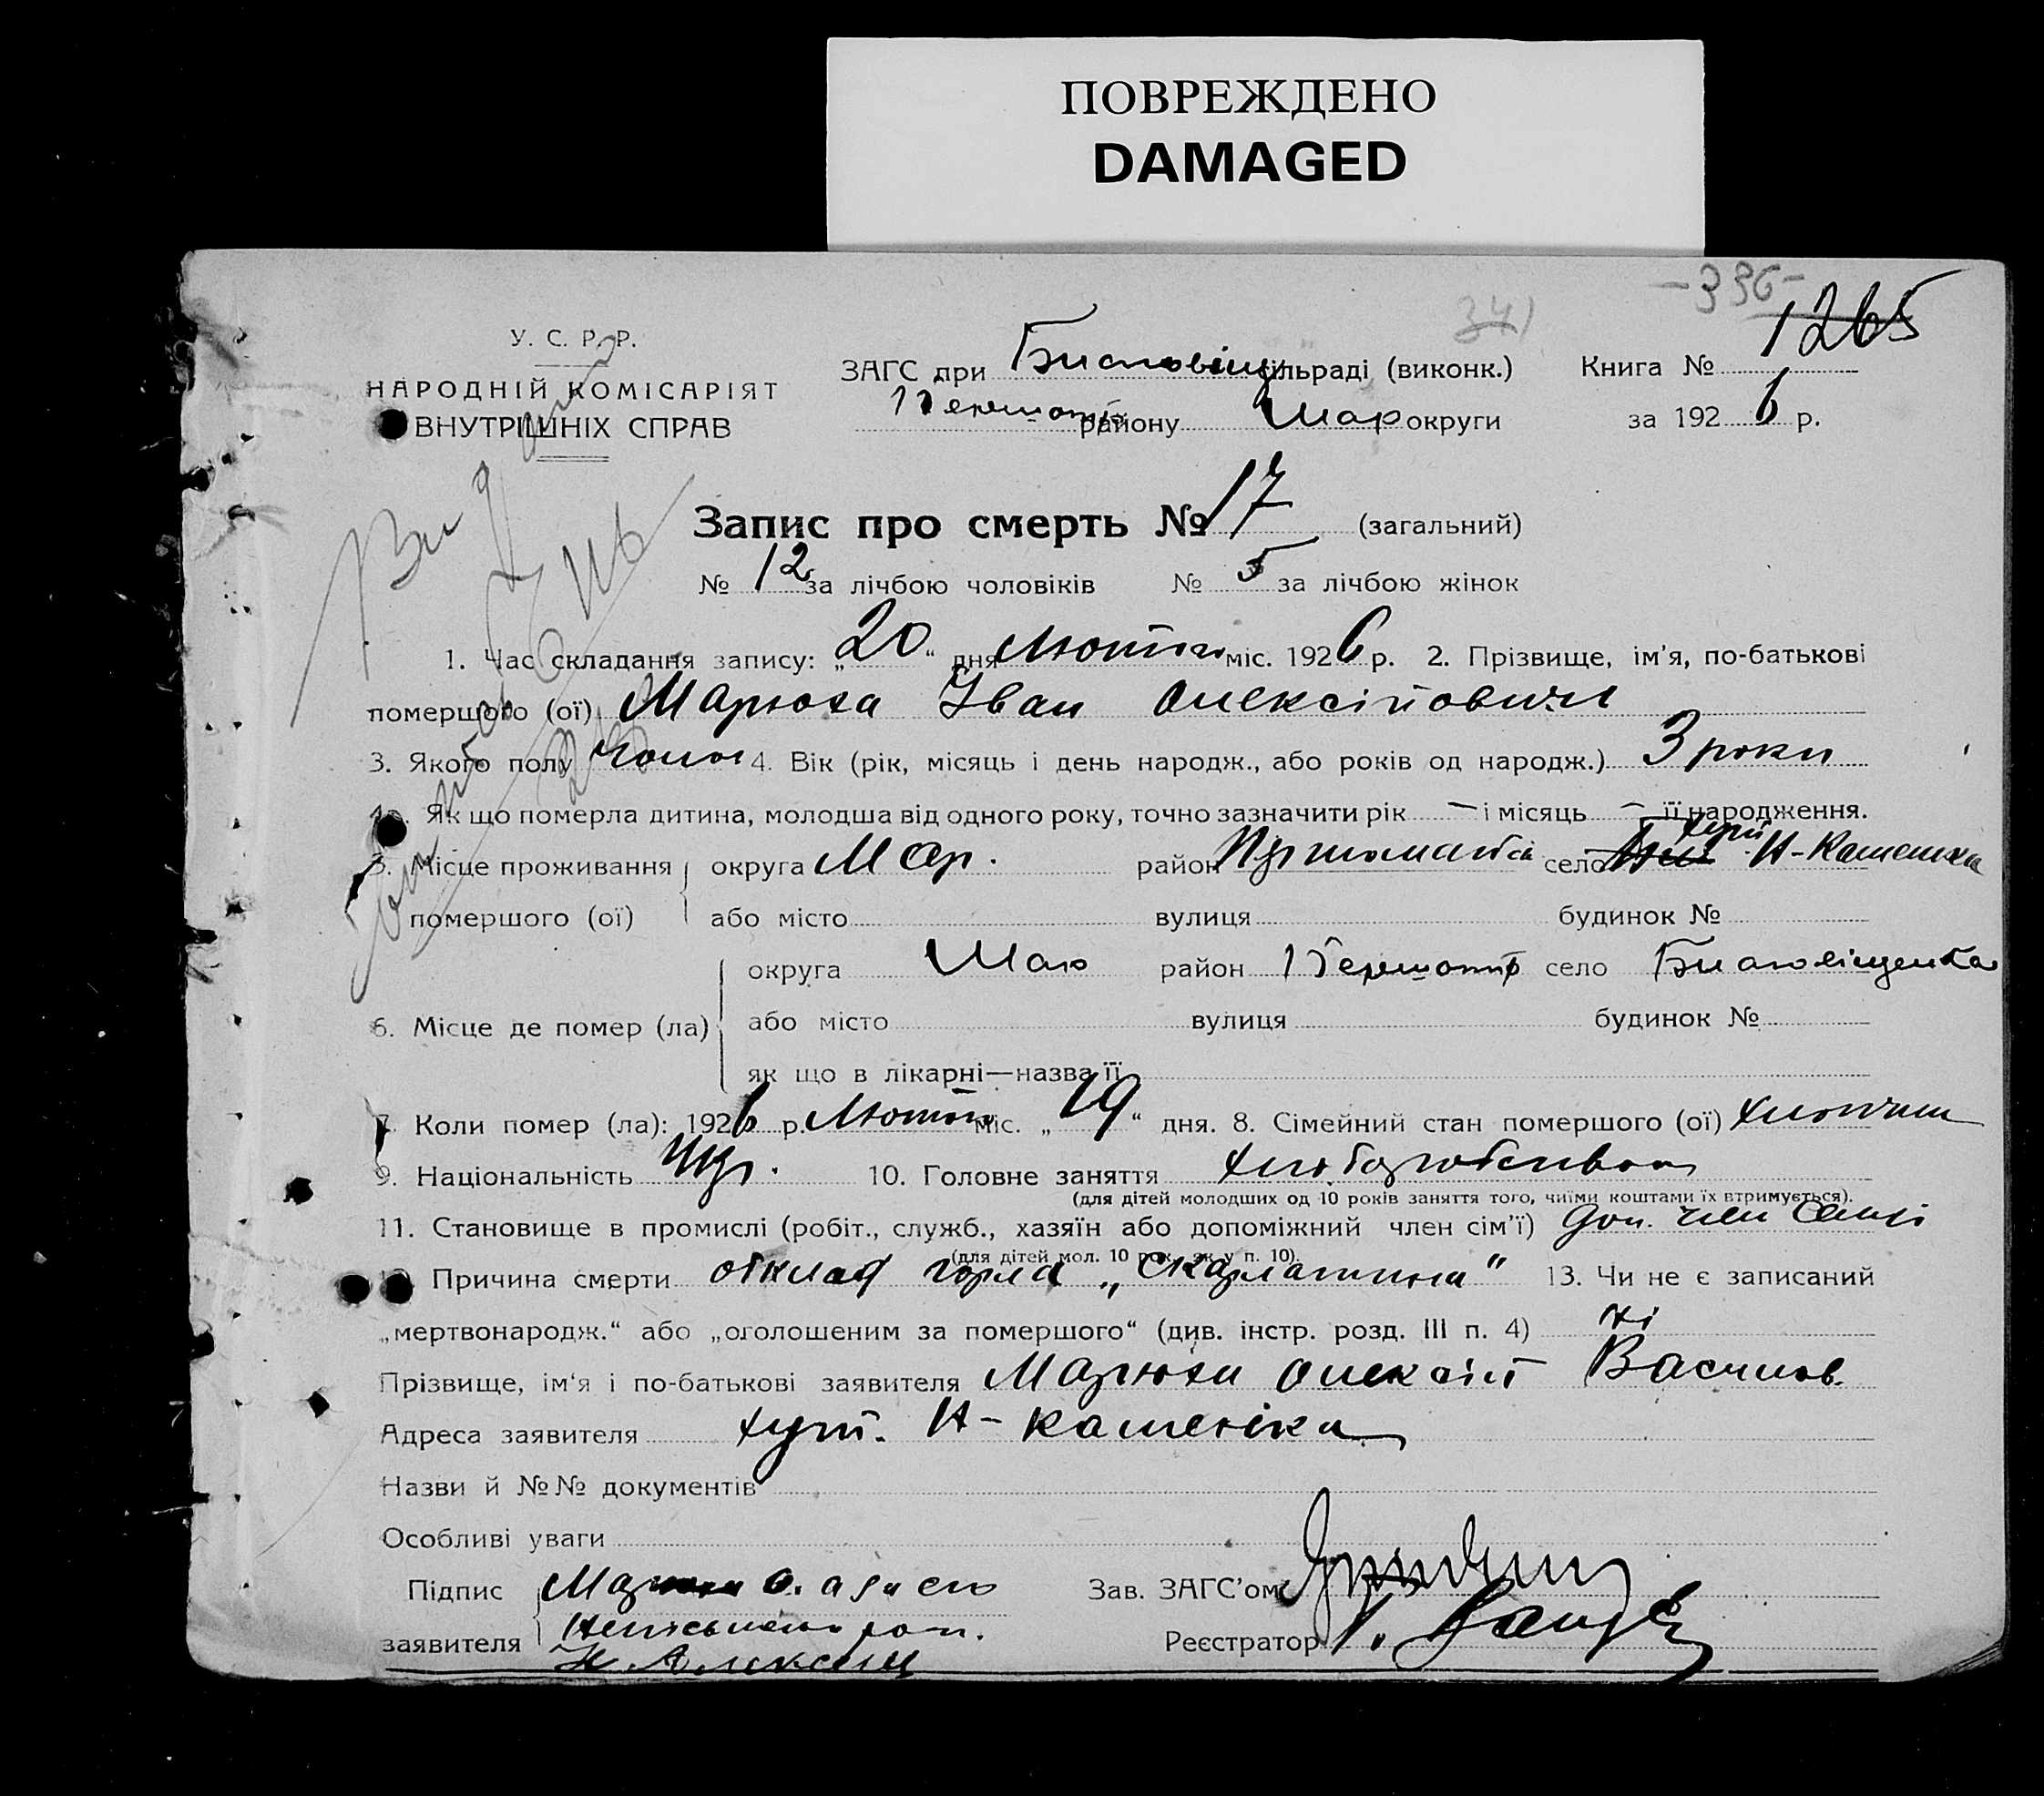 ПОВРЕЖДЕНО
DAMAGED
-396-
341
1265
У. С. Р. Р.
НАРОДНІЙ КОМІСАРІЯТ
ВНУТРІШНІХ СПРАВ
ЗАГС при Благовіщ сільраді (виконк.)
району Мар округи
Книга №
за 1926 р.
Запис про смерть № 17 (загальний)
№ 12 за лічбою чоловіків № 5 за лічбою жінок
1. Час складання запису: „20“ дня Лютого міс. 1926 р. 2. Прізвище, ім'я, по-батькові
помершого (ої) Марюха Іван Олексійович
3. Якого полу чолов 4. Вік (рік, місяць і день народж., або років од народж.) 3 роки
Як що померла дитина, молодша від одного року, точно зазначити рік — і місяць — її народження.
5. Місце проживання округа Мар. район село хут Н-Каменка
помершого (ої) або місто вулиця будинок №
округа Мар район село Благовіщенка
6. Місце де помер (ла) або місто вулиця будинок №
як що в лікарні—назва її
7. Коли помер (ла): 1926 р. Лютого міс. „19“ дня. 8. Сімейний стан помершого (ої) хлопчик
9. Національність Укр. 10. Головне заняття хлібороб
(для дітей молодших од 10 років заняття того, чиїми коштами їх втримується).
11. Становище в промислі (робіт., служб., хазяїн або допоміжний член сім'ї) доп. член семьі
(для дітей мол. 10 рок. як у п. 10).
Причина смерти обклад горла „Скарлатина“ 13. Чи не є записаний
„мертвонародж.“ або „оголошеним за помершого“ (див. інстр. розд. III п. 4) ні
Прізвище, ім'я і по-батькові заявителя Марюха Олексій Васильов.
Адреса заявителя хут. Н-Каменка
Назви й №№ документів
Особливі уваги
Підпис Марюха О. а за его
заявителя неписьменн
Зав. ЗАГС'ом
Реєстратор